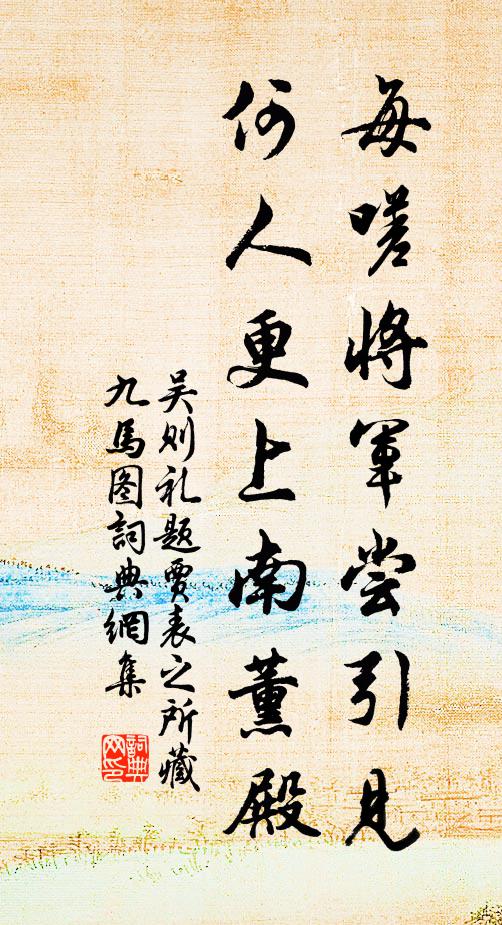 每嗟将军尝引见
何人更上南薰殿
吴则礼题贾表之所藏
九馬图詞典網集
詞典
网印